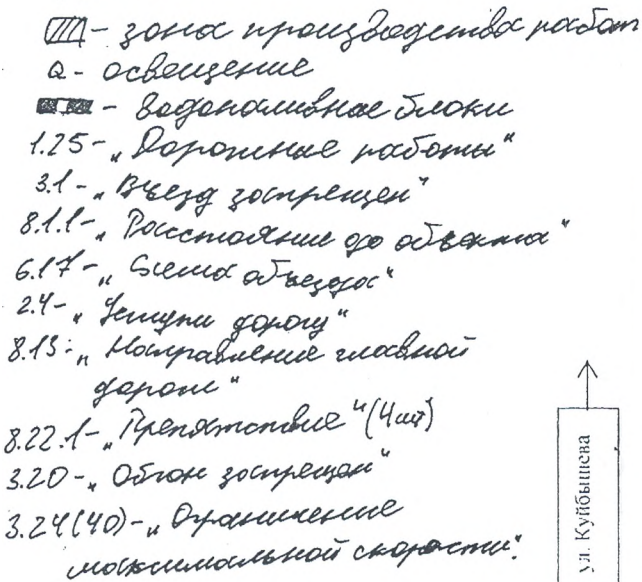 - зона производства работ
- освещение
- водоналивные блоки
1.25 - „Дорожные работы"
3.1 - „Въезд запрещен"
8.1.1 - „Расстояние до объекта"
6.17 - „Схема объезда"
2.4 - „Уступи дорогу"
8.13 - „Направление главной
дороги"
8.22.1 - „Препятствие" (4шт)
3.20 - „Обгон запрещен"
3.24(40) - „Ограничение
максимальной скорости".
ул. Куйбышева